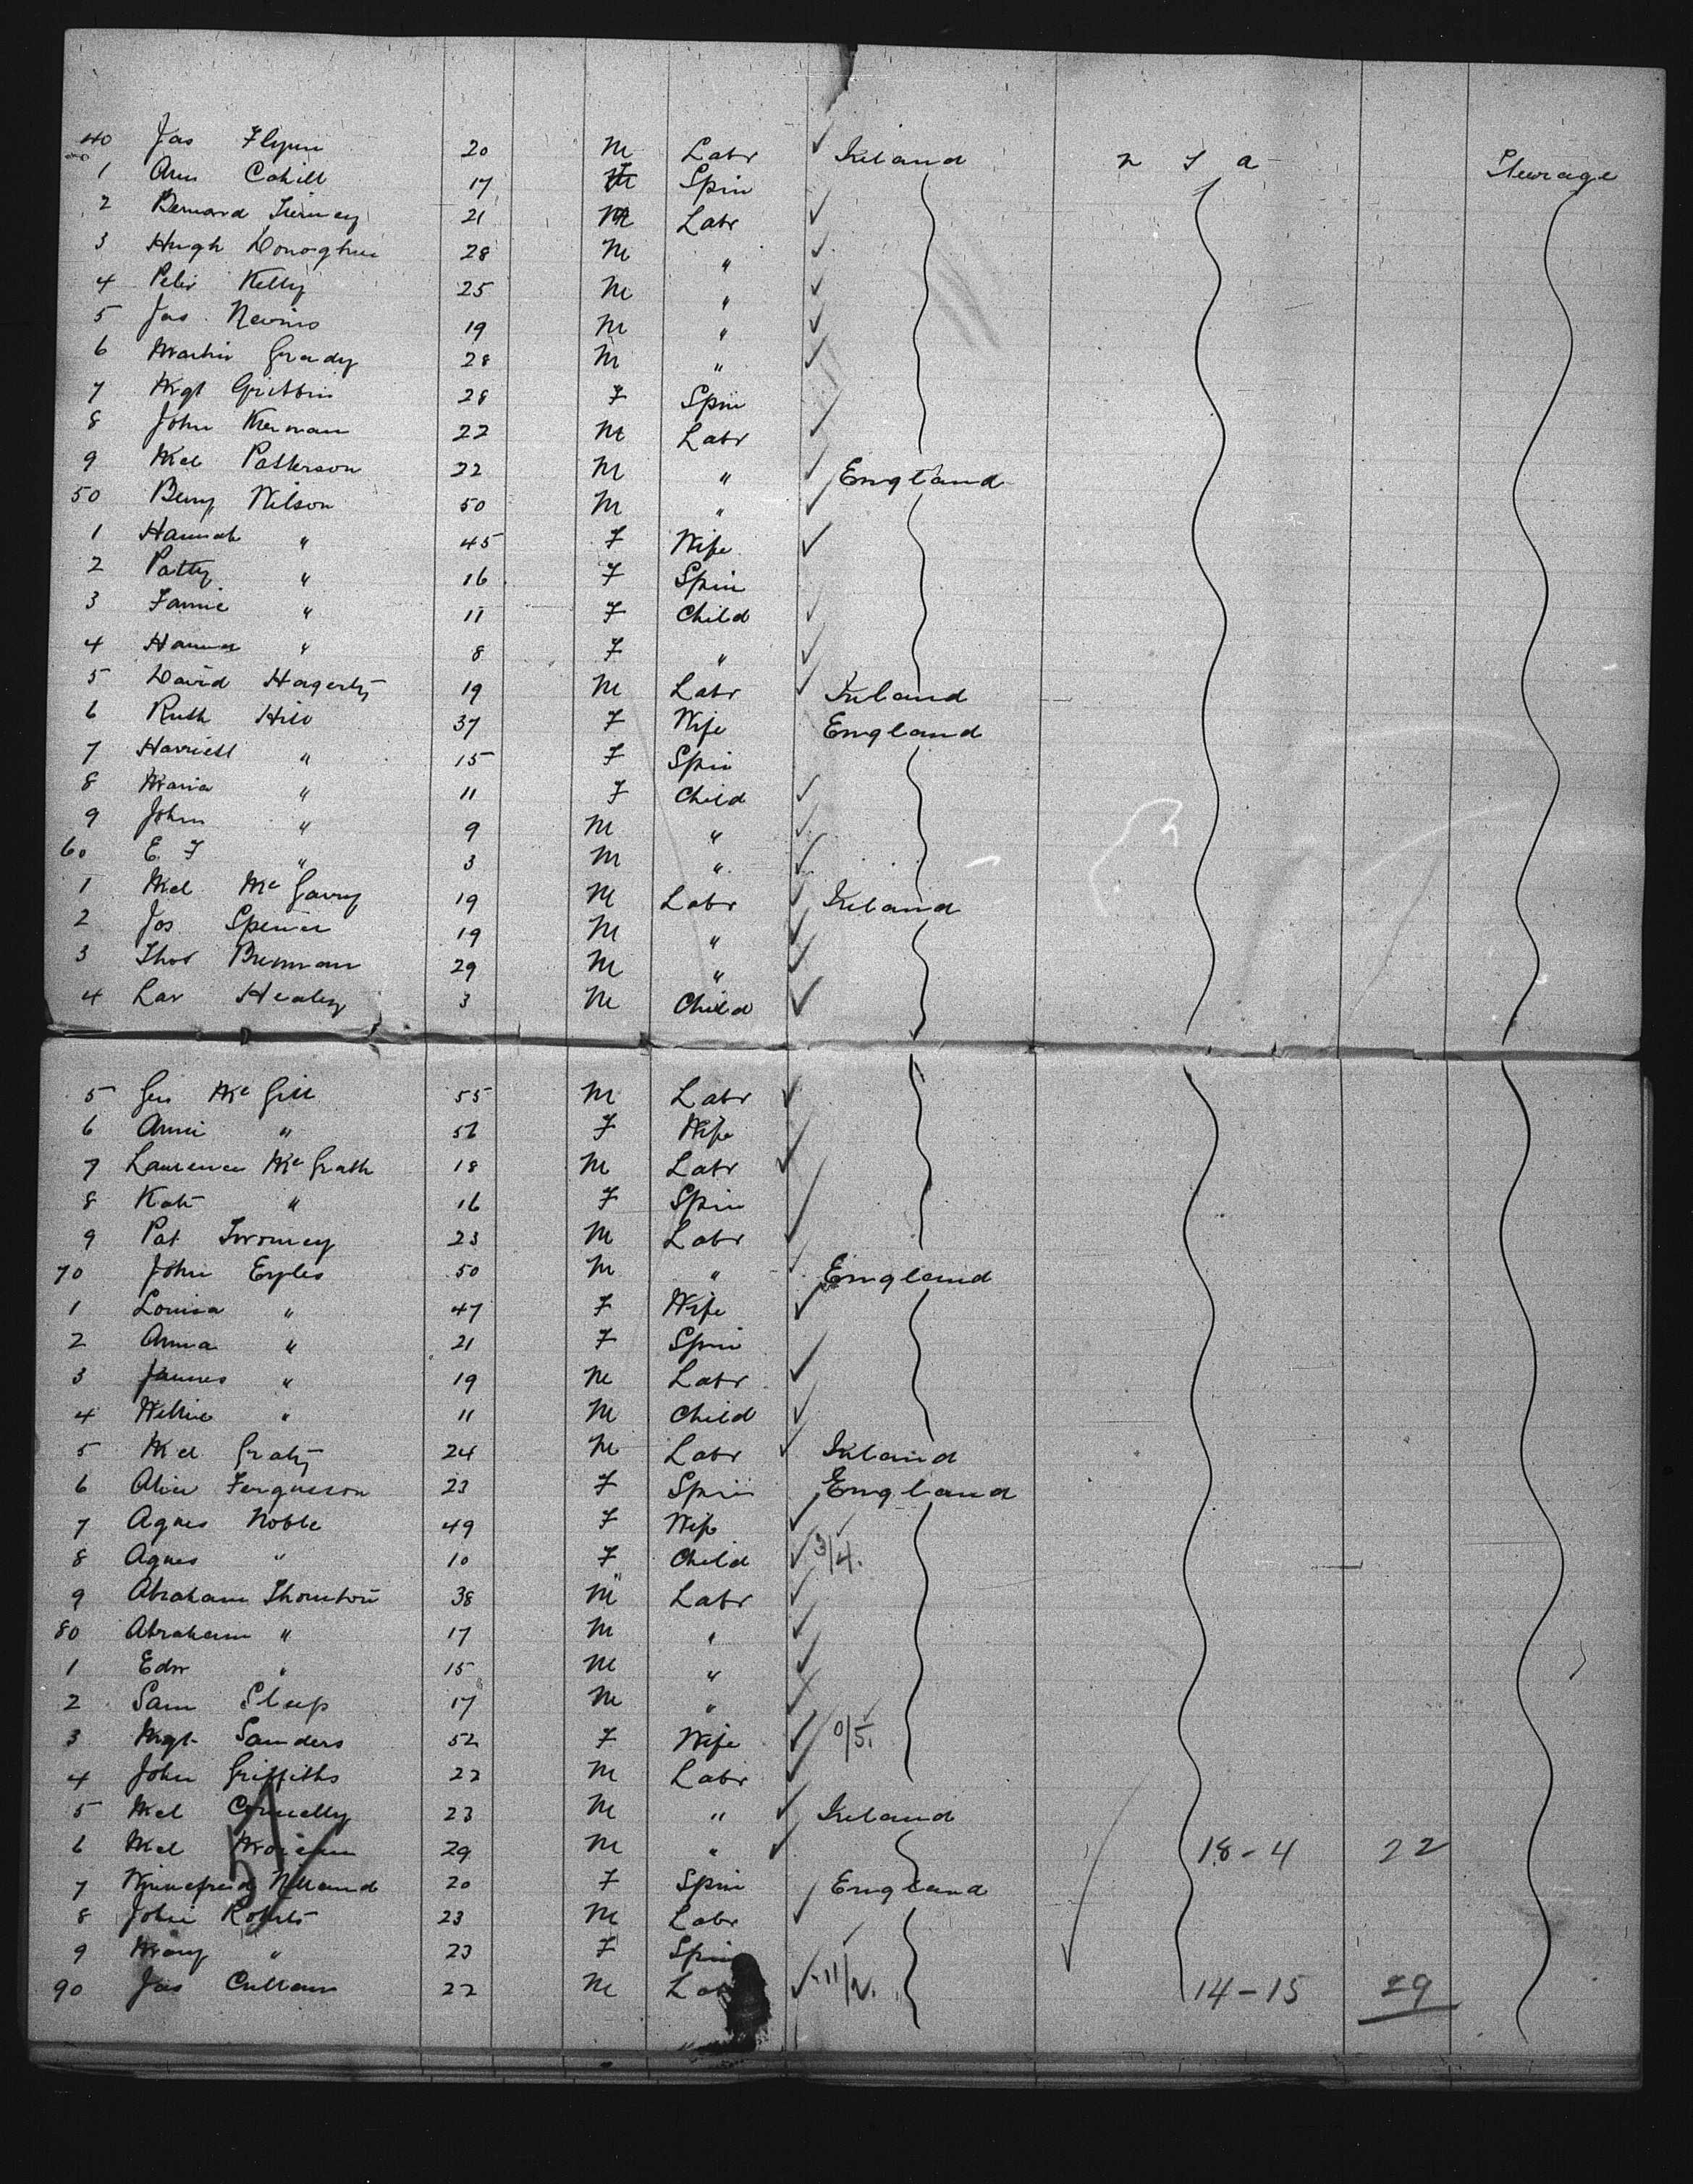 40 Jas Flynn 20 M Labr Ireland U S A Steerage
1 Ann Cahill 17 F Spin
2 Bernard Tierney 21 M Labr
3 Hugh Donoghue 28 M "
4 Peter Kelly 25 M "
5 Jas Nevins 19 M "
6 Martin Grady 28 M "
7 Mgt Gribbin 28 F Spin
8 John Kiernan 22 M Labr
9 Mcl Patterson 22 M " England
50 Benj Wilson 50 M "
1 Hannah " 45 F Wife
2 Patty " 16 F Spin
3 Fannie " 11 F Child
4 Hanna " 8 F "
5 David Hagerty 19 M Labr Ireland
6 Ruth Hill 37 F Wife England
7 Harriett " 15 F Spin
8 Maria " 11 F Child
9 John " 9 M "
60 E. F " 3 M "
1 Mcl McGarry 19 M Labr Ireland
2 Jos Spencer 19 M "
3 Thos Brennan 29 M "
4 Lar Healey 3 M Child
5 Geo McGill 55 M Labr
6 Annie " 56 F Wife
7 Laurence McGrath 18 M Labr
8 Kate " 16 F Spin
9 Pat Twomey 23 M Labr
70 John Eyles 50 M " England
1 Louisa " 47 F Wife
2 Anna " 21 F Spin
3 James " 19 M Labr
4 Willie " 11 M Child
5 Mcl Graty 24 M Labr Ireland
6 Alice Fergusson 23 F Spin England
7 Agnes Noble 49 F Wife
8 Agnes " 10 F Child 3/4.
9 Abraham Thornton 38 M Labr
80 Abraham " 17 M "
1 Edw " 15 M "
2 Sam Sleep 17 M "
3 Mgt Sanders 52 F Wife 0/5.
4 John Griffiths 22 M Labr
5 Mcl Connelly 23 M " Ireland
6 Mcl 29 M " 18-4 22
7 Winnefred 20 F Spin England
8 John Roberts 23 M Labr
9 Mary " 23 F Spin
90 Jas Cullam 22 M Lab 11/2. 14-15 29